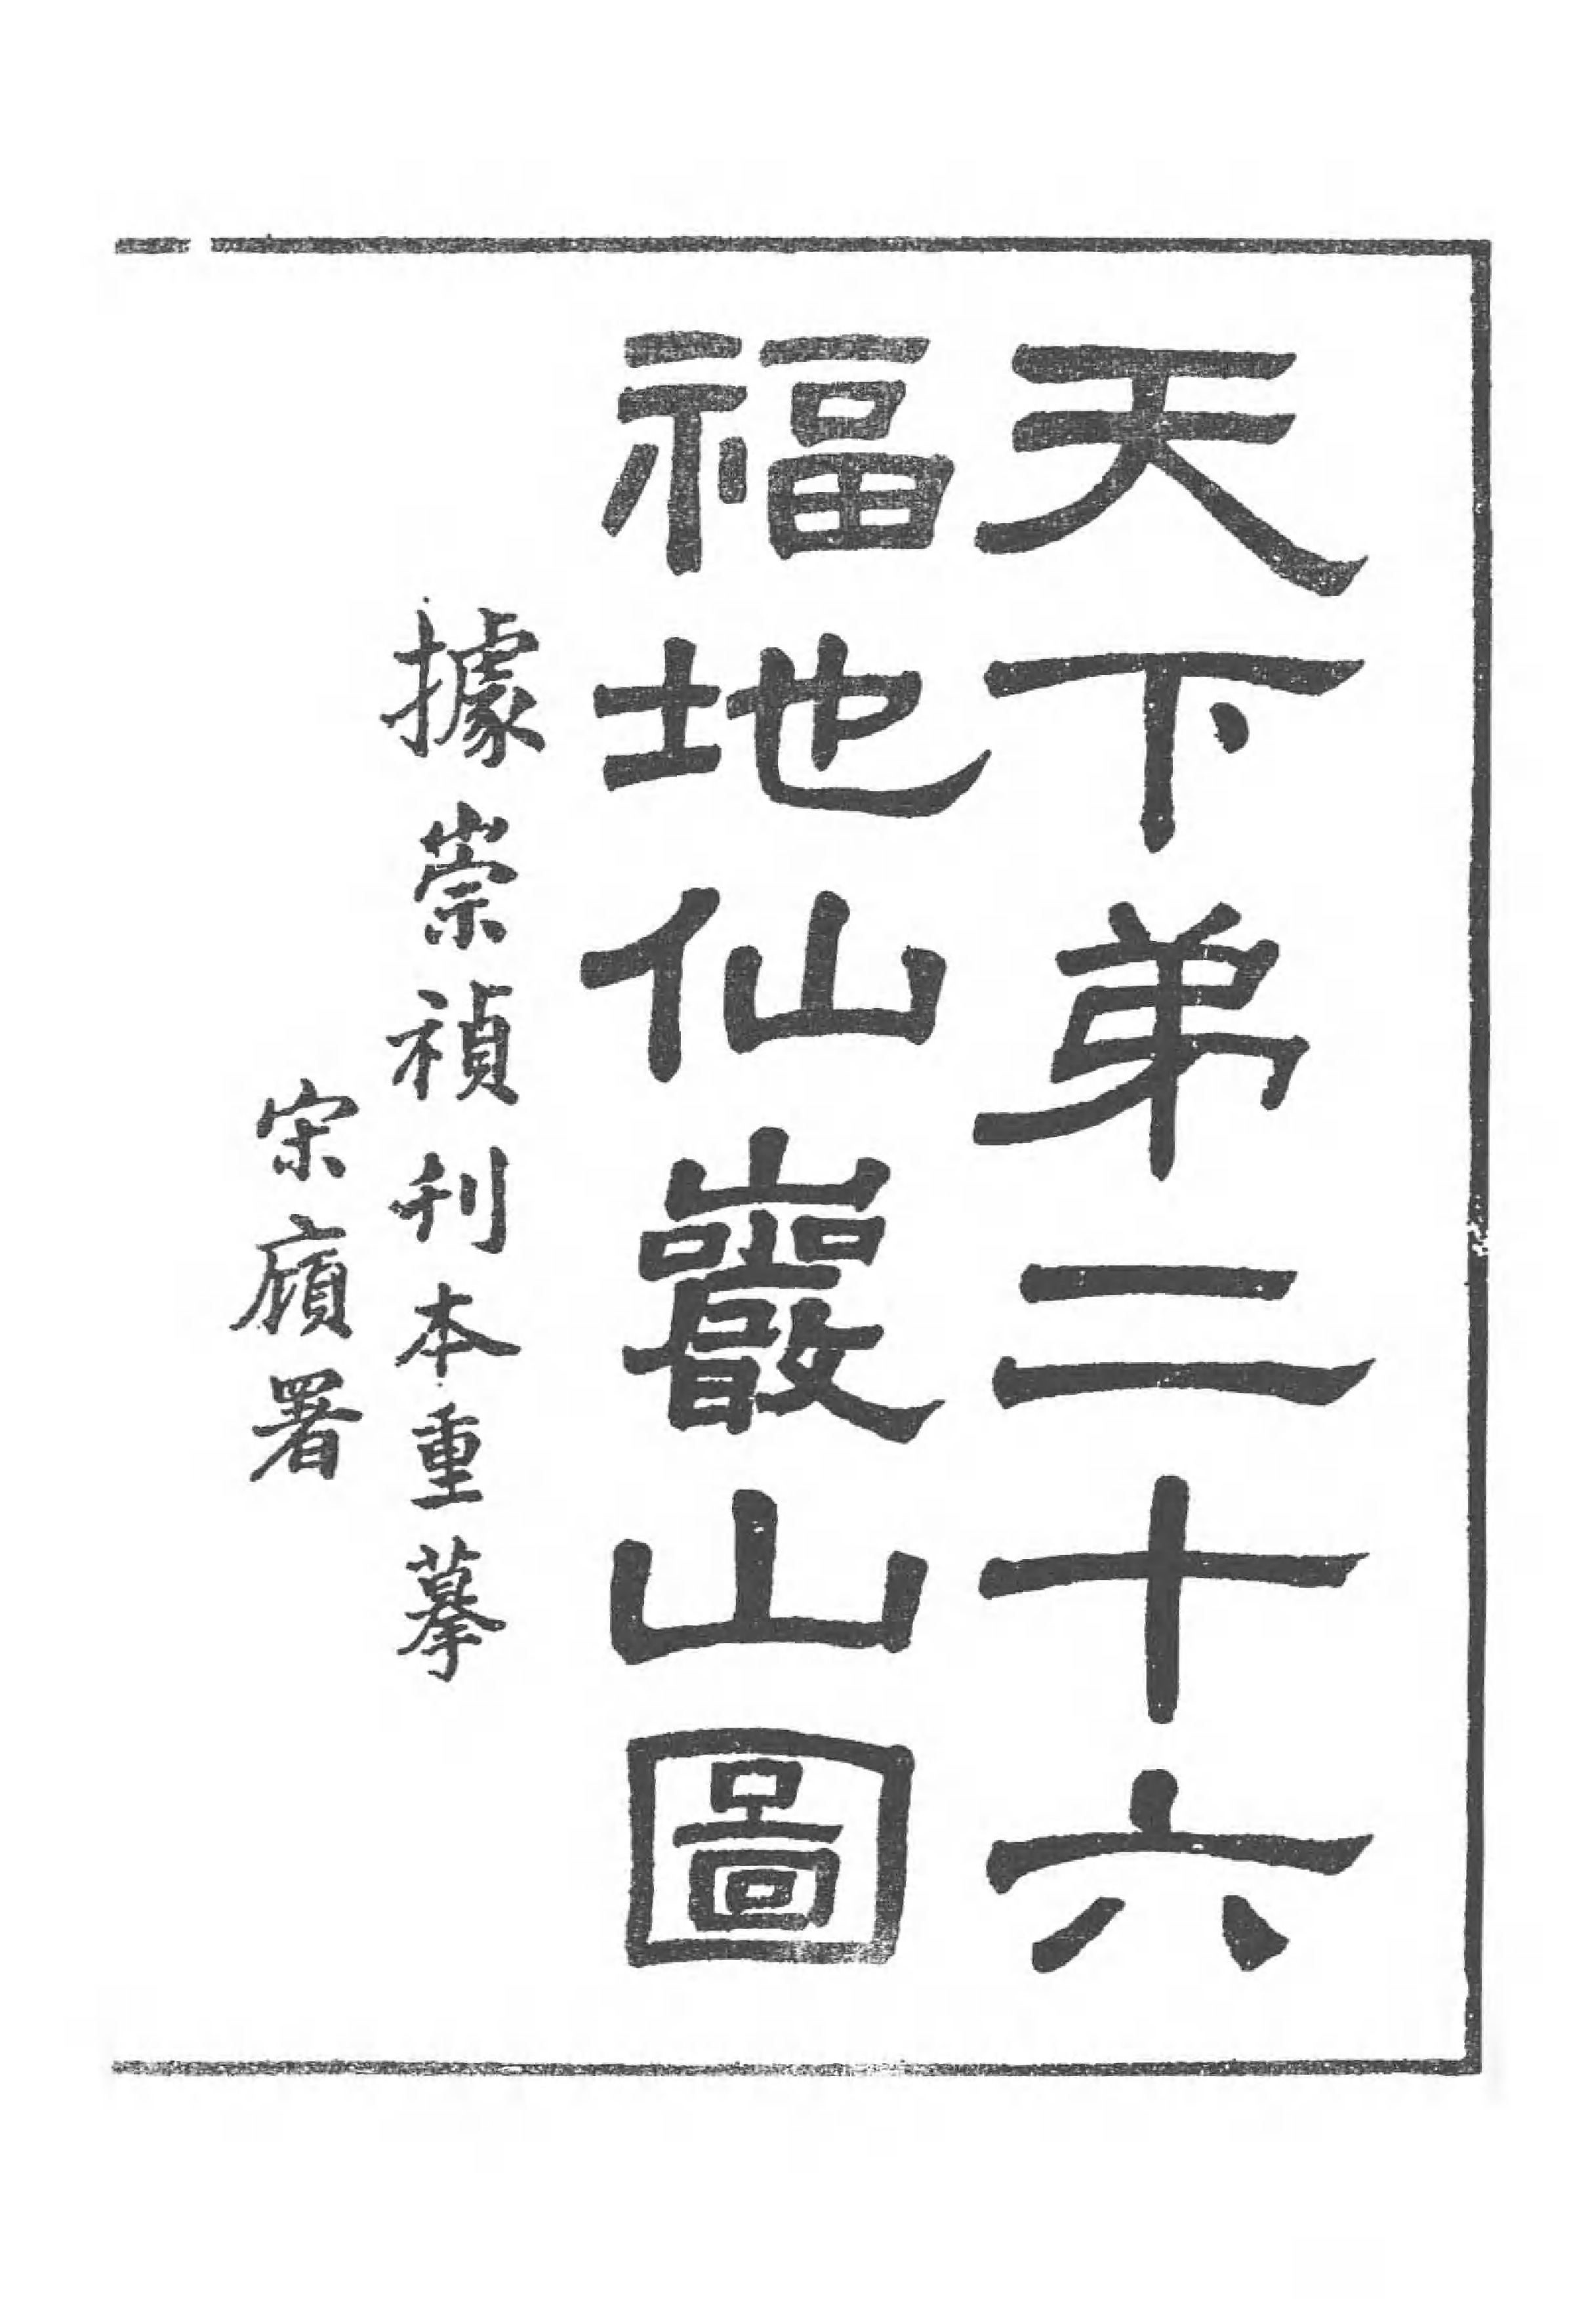 天下弟二十六
福地仙巖山圖
據崇禎刋本重摹
宋廎署